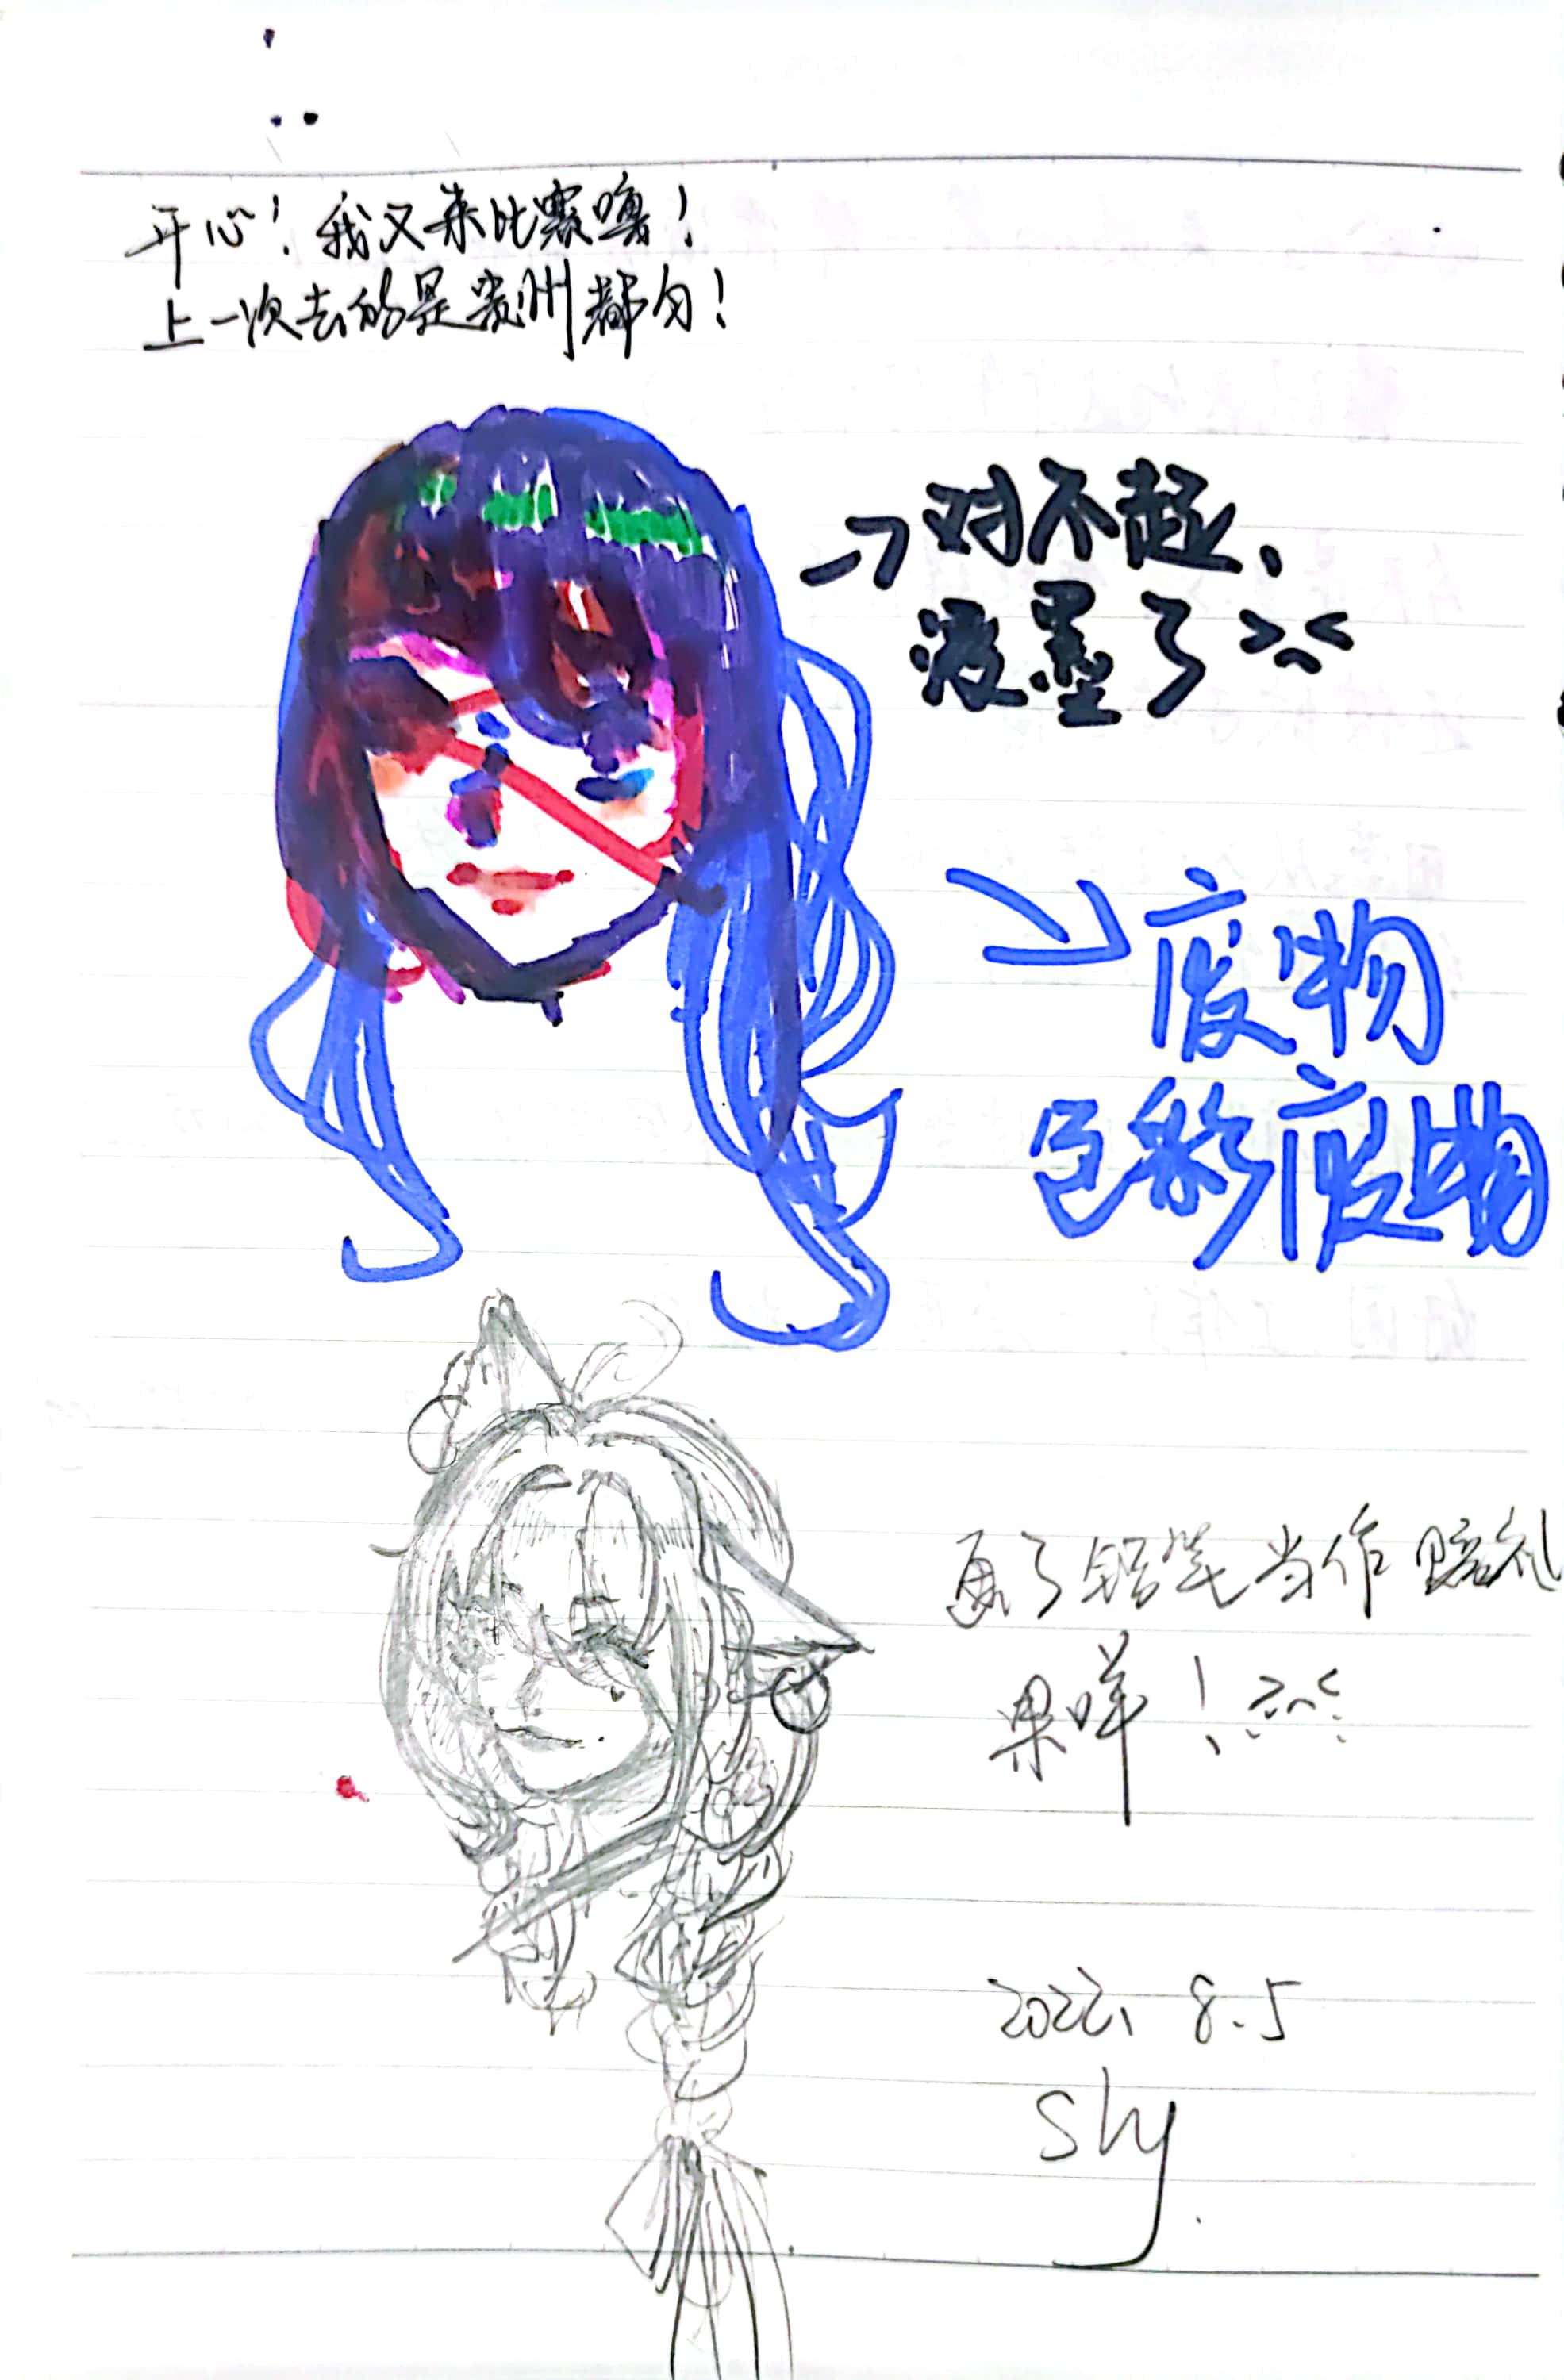 开心！我又来比赛噜！
上一次去的是贵州都匀！
→对不起、
液墨了><
→废物
色彩废物
画了铅笔当作赔礼
果咩！><
2022、8.5
Shy